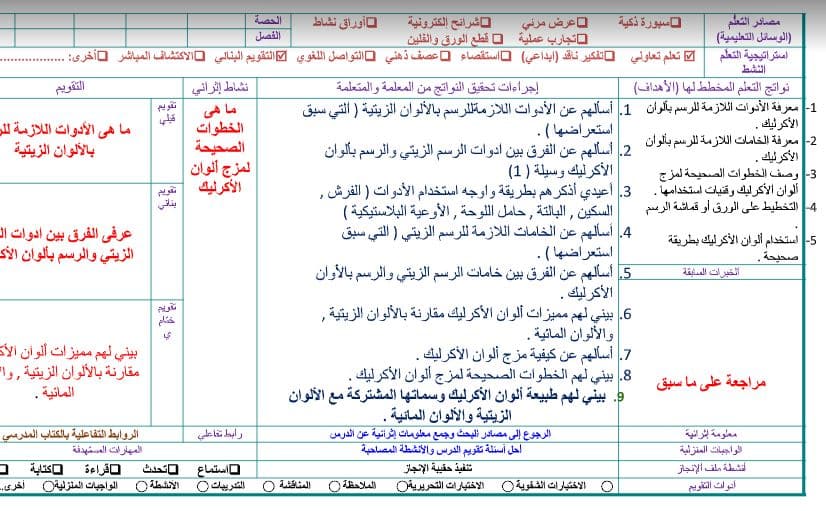 مصادر التعلم
(الوسائل التعليمية)
سبورة ذكية
عرض مرئي
شرائح الكترونية
أوراق نشاط
تجارب عملية
قطع الورق والفلين
الحصة
الفصل
استراتيجية التعلم
النشط
تعلم تعاوني
تفكير ناقد (ابداعي)
استقصاء
عصف ذهني
التواصل اللغوي
التقويم البنائي
الاكتشاف المباشر
أخرى: ..................
نواتج التعلم المخطط لها (الأهداف)
إجراءات تحقيق النواتج من المعلمة والمتعلمة
نشاط إثرائي
التقويم
1- معرفة الأدوات اللازمة للرسم بألوان
الأكرليك .
2- معرفة الخامات اللازمة للرسم بألوان
الأكرليك .
3- وصف الخطوات الصحيحة لمزج
ألوان الأكرليك وقنيات استخدامها .
4- التخطيط على الورق أو قماشة الرسم
.
5- استخدام ألوان الأكرليك بطريقة
صحيحة .
الخبرات السابقة
مراجعة على ما سبق
1. أسألهم عن الأدوات اللازمةللرسم بالألوان الزيتية ( التي سبق
استعراضها ) .
2. أسألهم عن الفرق بين ادوات الرسم الزيتي والرسم بألوان
الأكرليك وسيلة ( 1)
3. أعيدي أذكرهم بطريقة واوجه استخدام الأدوات ( الفرش ,
السكين , البالتة , حامل اللوحة , الأوعية البلاستيكية )
4. أسألهم عن الخامات اللازمة للرسم الزيتي ( التي سبق
استعراضها ) .
5. أسألهم عن الفرق بين خامات الرسم الزيتي والرسم بالأوان
الأكرليك .
6. بيني لهم مميزات ألوان الأكرليك مقارنة بالألوان الزيتية ,
والألوان المائية .
7. أسألهم عن كيفية مزج ألوان الأكرليك .
8. بيني لهم الخطوات الصحيحة لمزج ألوان الأكرليك .
9. بيني لهم طبيعة ألوان الأكرليك وسماتها المشتركة مع الألوان
الزيتية والألوان المائية .
ما هي
الخطوات
الصحيحة
لمزج ألوان
الأكرليك
تقويم
قبلي
ما هى الأدوات اللازمة
بالألوان الزيتية
تقويم
بنائي
عرفى الفرق بين ادوات
الزيتي والرسم بألوان
تقويم
ختام
ي
بيني لهم مميزات ألوان
مقارنة بالألوان الزيتية ,
المائية .
معلومة إثرائية
الرجوع إلى مصادر البحث وجمع معلومات إثرائية عن الدرس
رابط تفاعلي
الروابط التفاعلية بالكتاب المدرسي
الواجبات المنزلية
أحل أسئلة تقويم الدرس والأنشطة المصاحبة
المهارات المستهدفة
أنشطة ملف الإنجاز
تنفيذ حقيبة الإنجاز
استماع
تحدث
قراءة
كتابة
أدوات التقويم
الاختبارات الشفوية
الاختبارات التحريرية
الملاحظة
المناقشة
التدريبات
الأنشطة
الواجبات المنزلية
أخرى..